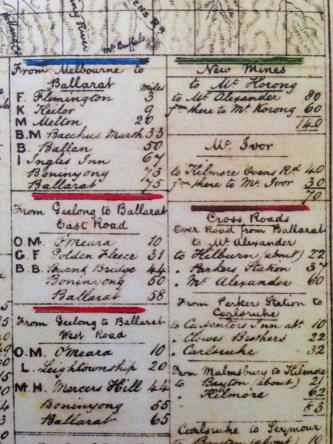 River
Mt Buffalo
From Melbourne to
Ballarat miles
F. Flemington 3
K. Keilor 9
M Melton 20
B.M Bacchus Marsh 33
B. Ballan 50
I Ingles Inn 67
Boninyong 73
Ballarat 75
From Geelong to Ballarat
East Road
O.M. O'Meara 10
G.F Golden Fleece 31
B.B. Bridge 44
Boninyong 50
Ballarat 58
From Geelong to Ballarat
West Road
O.M. O'Meara 10
L. Leightownship 20
M.H. Mercers Hill 44
Boninyong 55
Ballarat 65
New Mines
to Mt Korong
to Mt Alexander 80
from there to Mt Korong 60
140
Mt Ivor
to Kilmore Ovens Rd 40
from there to Mt Ivor 30
70
Cross Roads
Over Road from Ballarat
to Mt Alexander
to Hilburn (about) 22
" Parkers Station 37
" Mt Alexander 60
From Parker Station to
Carlsruhe
to Carpenters Inn abt. 10
" Clowes Brothers 22
" Carlsruhe 32
From Malmsbury to Kilmore
to Baynton (about) 21
" Kilmore 62
83
Carlsruhe to Seymour